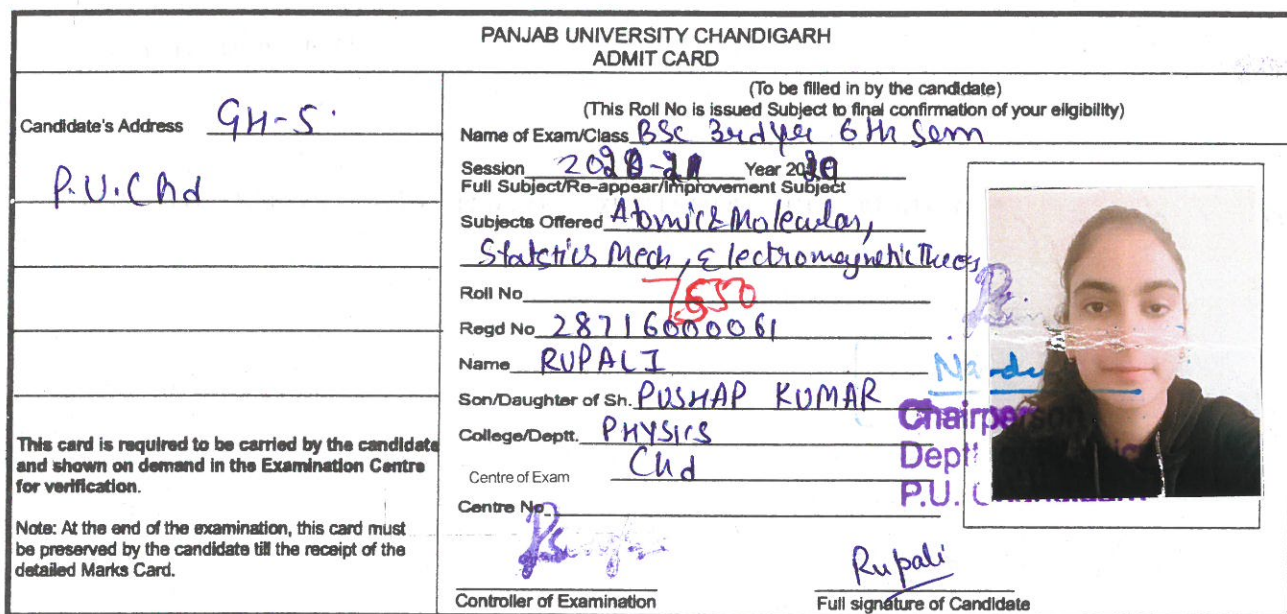 PANJAB UNIVERSITY CHANDIGARH
ADMIT CARD
Candidate's Address GH-5.
P.U. Chd
This card is required to be carried by the candidate
and shown on demand in the Examination Centre
for verification.
Note: At the end of the examination, this card must
be preserved by the candidate till the receipt of the
detailed Marks Card.
(To be filled in by the candidate)
(This Roll No is issued Subject to final confirmation of your eligibility)
Name of Exam/Class BSc 3rd yer 6th Sem
Session Year
Full Subject/Re-appear/Improvement Subject
Subjects Offered Atomic & Molecular,
Statstics Mech, Electromagnetic
Roll No
Regd No 28716000061
Name RUPALI
Son/Daughter of Sh. PUSHAP KUMAR
College/Deptt. PHYSICS
Centre of Exam Chd
Centre No
P.U.
Controller of Examination
Rupali
Full signature of Candidate